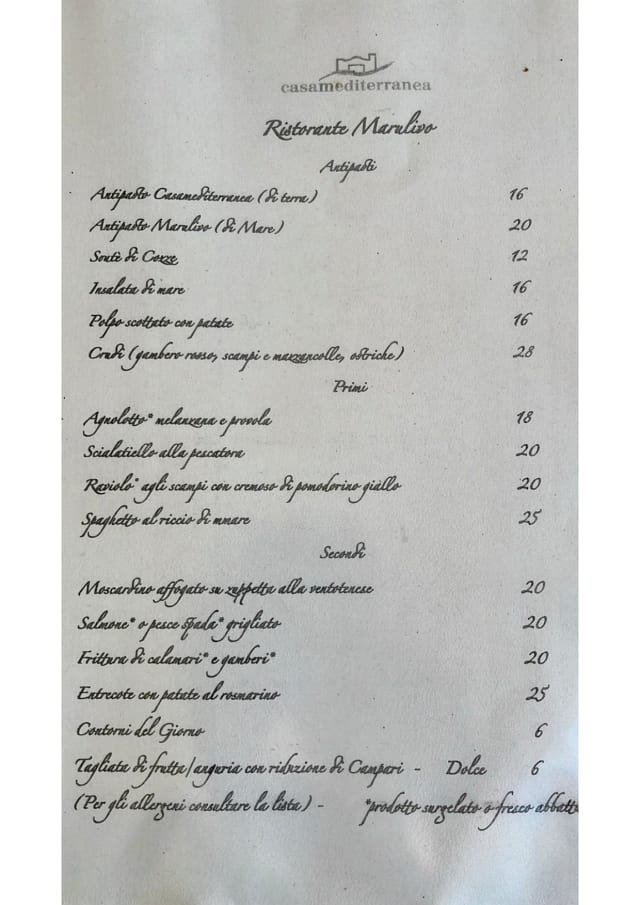 casamediterranea
Ristorante Marulivo
Antipasti
Antipasto Casamediterranea (di terra) 16
Antipasto Marulivo (di Mare) 20
Soutè di Cozze 12
Insalata di mare 16
Polpo scottato con patate 16
Crudi (gambero rosso, scampi e mazzancolle, ostriche) 28
Primi
Agnolotto* melanzana e provola 18
Scialatiello alla pescatora 20
Raviolo* agli scampi con cremoso di pomodorino giallo 20
Spaghetto al riccio di mmare 25
Secondi
Moscardino affogato su zuppetta alla ventotenese 20
Salmone* o pesce spada* grigliato 20
Frittura di calamari* e gamberi* 20
Entrecote con patate al rosmarino 25
Contorni del Giorno 6
Tagliata di frutta/anguria con riduzione di Campari - Dolce 6
(Per gli allergeni consultare la lista) - *prodotto surgelato o fresco abbatt